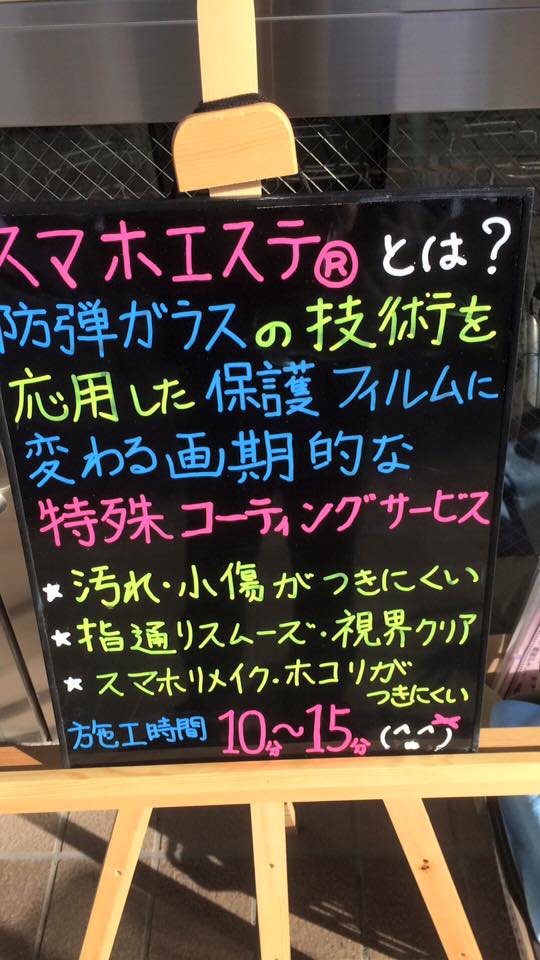 スマホエステ® とは？
防弾ガラスの技術を
応用した保護フィルムに
変わる画期的な
特殊コーティングサービス
★汚れ・小傷がつきにくい
★指通りスムーズ・視界クリア
★スマホリメイク・ホコリが
つきにくい
施工時間 10分〜15分(^-^)